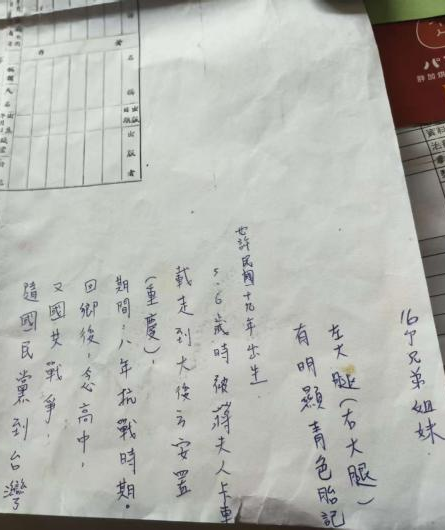 16个兄弟姐妹
左大腿(右大腿)
有明顯青色胎記
民國十九年出生
5.6歲時被蔣夫人卡車
載走到大後方安置
(重慶)
期間:八年抗戰時期。
回鄉後,念高中,
又國共戰爭,
隨國民黨到台灣
著
作
名稱
出版日期
出版者